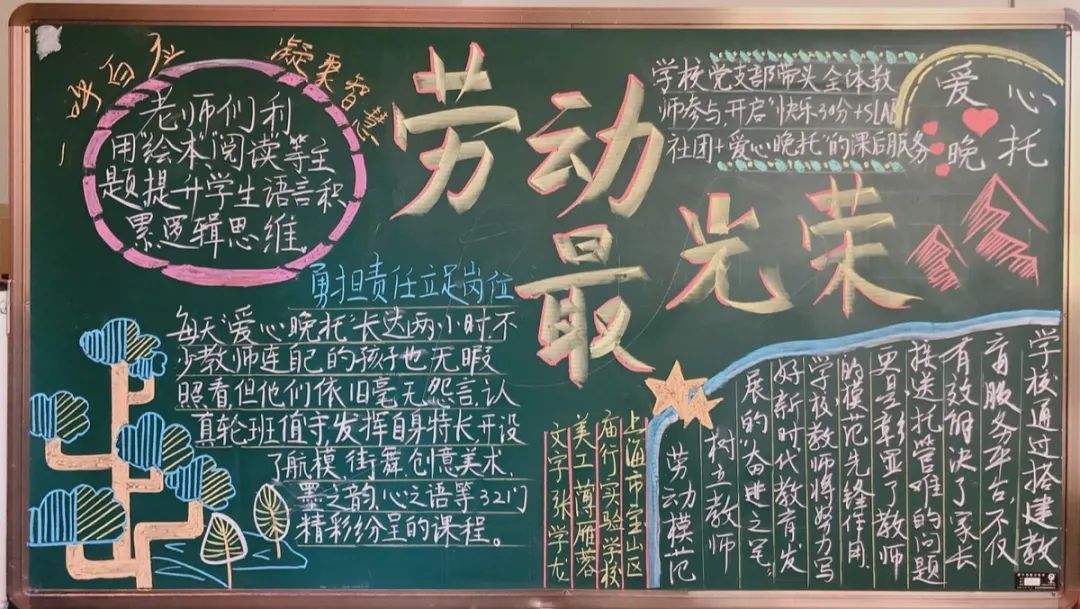 凝聚智慧
老师们利
用"绘本"阅读等主
题提升学生语言积
累逻辑思维。
劳动
最
光荣
学校党支部带头 全体教
师参与,开启"快乐30分+SLAB
社团+爱心晚托"的课后服务
爱心
晚托
勇担责任立足岗位
每天"爱心晚托"长达两小时不
少教师连自己的孩子也无暇
照看但他们依旧毫无怨言,认
真轮班值守,发挥自身特长开设
了航模、街舞、创意美术、
墨之韵、心之语等32门
精彩纷呈的课程。
学校通过搭建教
育服务平台不仅
有效解决了家长
接送托管难的问题
更是彰显了教师
的模范先锋作用.
学校教师将努力写
好新时代教育发
展的"奋进之笔"
树立教师
劳动模范
上海市宝山区
庙行实验学校
美工 薄雁蓉
文字 张学龙